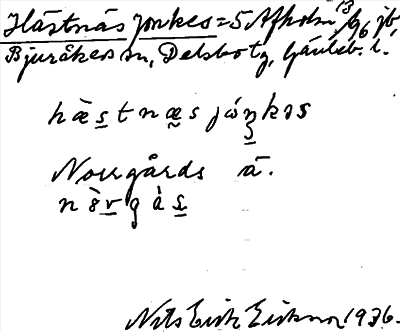 Hästnäs Jonkes = 5 Afholm 13/96 jb,
Bjuråkers sn, Delsbo tg, Gävleb. l.
hæ̀stnæs jóŋkəs
Norrgårds å.
Nils Erik Eriksson 1936.